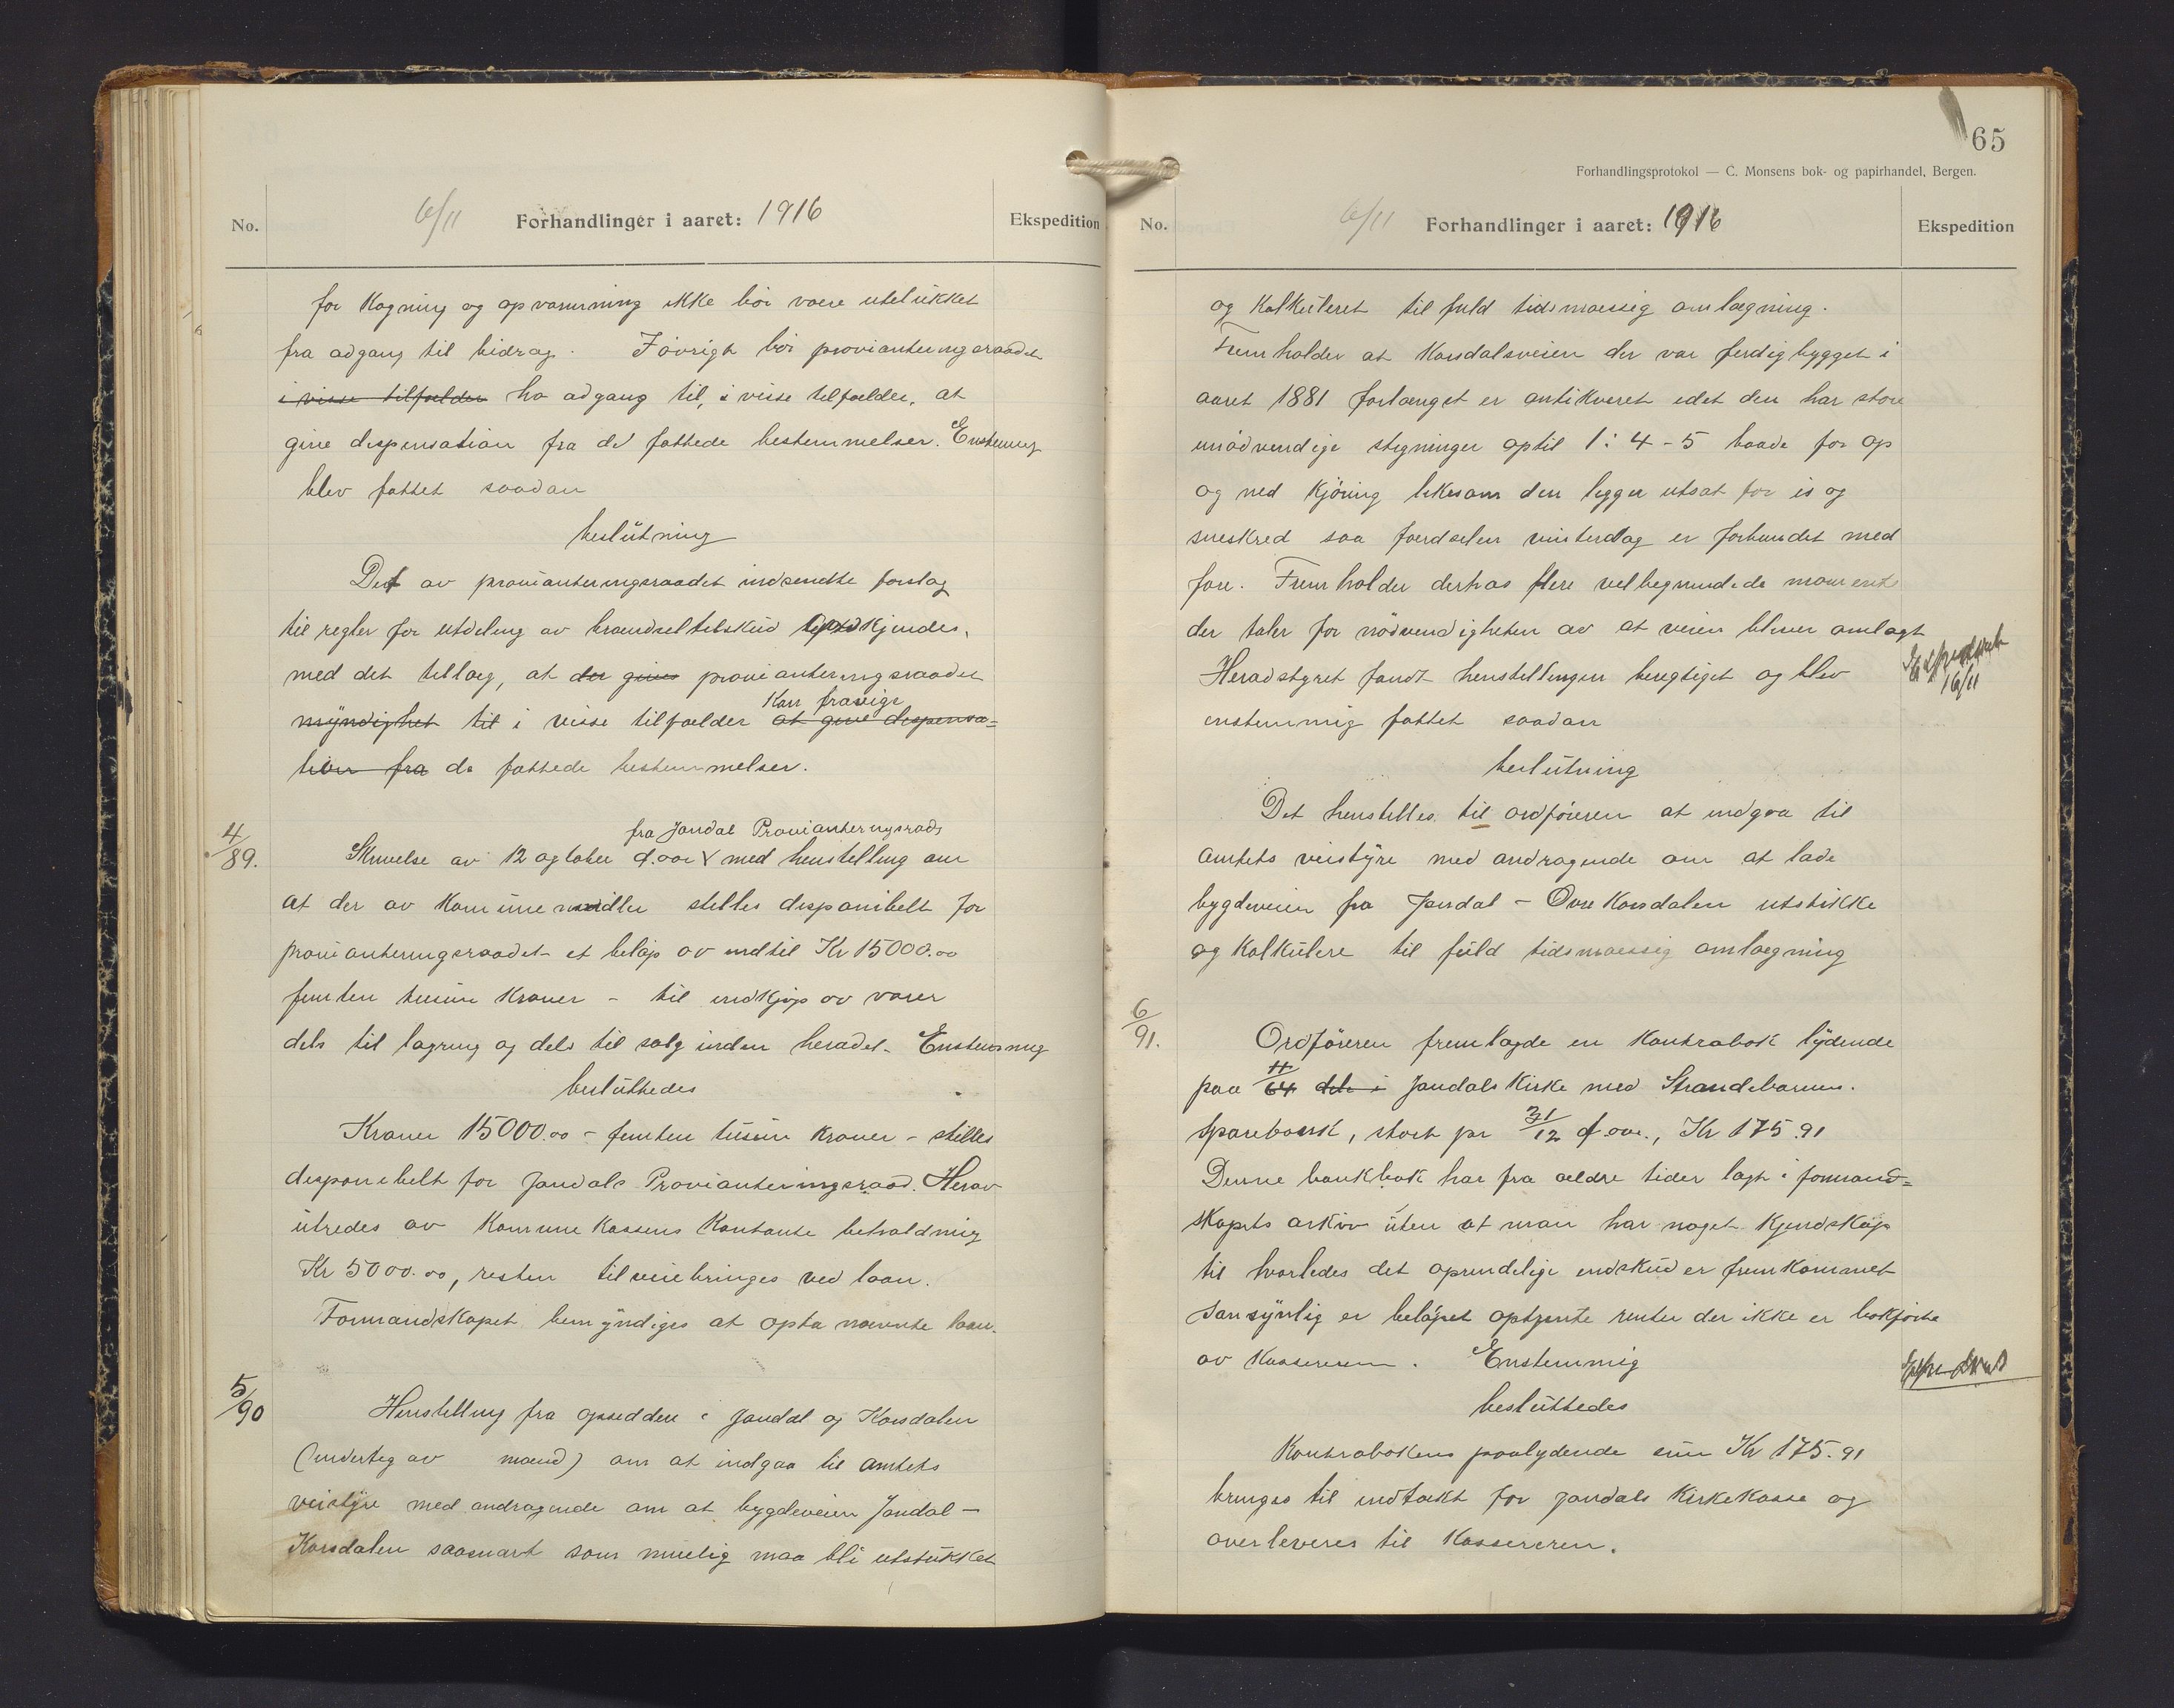 No.
6/11
Forhandlinger i aaret: 1916
Ekspedition
for Kogning og opvarmning ikke bör være utelukket
fra adgang til bidrag. Iövrigt bör provianteringsraadet
i visse tilfælder ha adgang til, i visse tilfælder, at
give dispensation fra de fattede bestemmelser. Enstemmig
blev fattet saadan
beslutning
Det av provianteringsraadet indsendte forslag
til regler for utdeling av brændseltilskud godkjendes,
med det tillæg, at der gives provianteringsraadet
Kan fravige
myndighet til i visse tilfælder at give dispensa-
tion fra de fattede bestemmelser.
4/89.
fra Jondal Provianteringsraad
Skrivelse av 12 october d.aar med henstilling om
at der av Kommunemidler stilles disponibelt for
provianteringsraadet et belöp av indtil Kr 15000.00
femten tusin Kroner - til indkjöp av varer
dels til lagring og dels til salg inden heradet. Enstemmig
besluttedes
Kroner 15000.00 - femten tusin Kroner - stilles
disponibelt for Jondals Provianteringsraad. Herav
utredes av Kommunekassens Kontante beholdning
Kr 5000.00, resten tilveiebringes ved laan.
Formandskapet bemyndiges at opta nævnte laan.
5/90
Henstilling fra opsiddere i Jondal og Korsdalen
(underteg av mænd) om at indgaa til amtets
veistyre med andragende om at bygdeveien Jondal -
Korsdalen saasnart som muelig maa bli utstukket
65
Forhandlingsprotokol — C. Monsens bok- og papirhandel, Bergen.
No.
6/11
Forhandlinger i aaret: 1916
Ekspedition
og Kalkuleret til fuld tidsmæssig omlægning.
Fremholder at Korsdalsveien der var ferdigbygget i
aaret 1881 forlængst er antikveret idet den har store
unödvendige stigninger optil 1:4-5 baade for op
og ned Kjöring likesom den ligger utsat for is og
sneskred saa færdselen vinterdag er forbundet med
fare. Fremholder derhos flere velbegrundede momenter
der taler for nödvendigheten av at veien bliver omlagt
Heradstyret fandt henstillingen beregtiget og blev
enstemmig fattet saadan
Ekspedert
16/11
beslutning
Det henstilles til ordföreren at indgaa til
amtets veistyre med andragende om at lade
bygdeveien fra Jondal - Övre Korsdalen utstikke
og Kalkulere til fuld tidsmæssig omlægning
6/91.
Ordföreren fremlagde en Kontrabok lydende
paa 11/64 dele i Jondals Kirke med Strandebarms
Sparebank, stort pr 31/12 f.aar., Kr 175.91
Denne bankbok har fra ældre tider lagt i formand-
skapets arkiv uten at man har noget Kjendskap
til hvorledes det oprindelige indskud er fremkommet
Sansynlig er belöpet optjente renter der ikke er bokförte
av Kassereren. Enstemmig
Ekspedert
besluttedes
Kontrabokens paalydende sum Kr 175.91
bringes til indtækt for Jondals Kirkekasse og
overleveres til Kassereren.